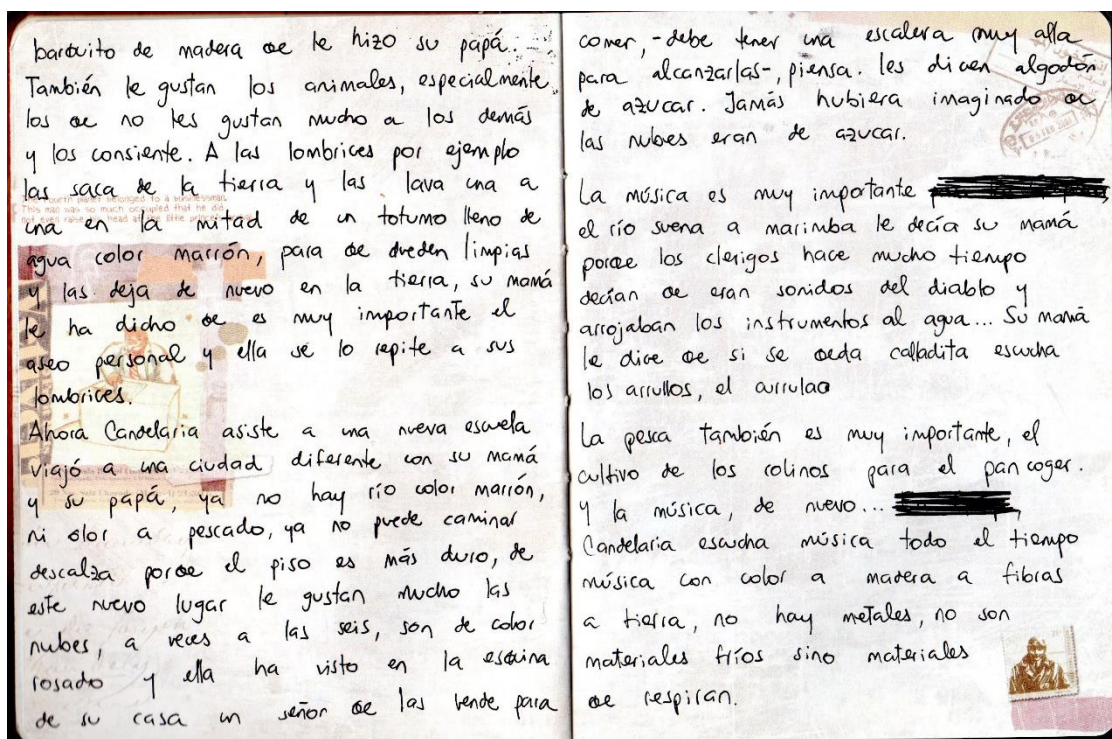 barquito de madera qe le hizo su papá.
También le gustan los animales, especialmente
los qe no les gustan mucho a los demás
y los consiente. A las lombrices por ejemplo
las saca de la tierra y las lava una a
fourth planet belonged to a businessman.
This man was so much occupied that he did
not even raise head at the little prince
una en la mitad de un totumo lleno de
agua color marrón, para qe queden limpias
y las deja de nuevo en la tierra, su mamá
le ha dicho qe es muy importante el
aseo personal y ella se lo repite a sus
lombrices.
Ahora Candelaria asiste a una nueva escuela
viajó a una ciudad diferente con su mamá
y su papá, ya no hay río color marrón,
ni olor a pescado, ya no puede caminar
descalza porqe el piso es más duro, de
este nuevo lugar le gustan mucho las
nubes, a veces a las seis, son de color
rosado y ella ha visto en la esquina
de su casa un señor qe las vende para
comer, -debe tener una escalera muy alta
para alcanzarlas-, piensa. les dicen algodón
de azucar. Jamás hubiera imaginado qe
las nubes eran de azucar.
La música es muy importante
el río suena a marimba le decía su mamá
porqe los clerigos hace mucho tiempo
decían qe eran sonidos del diablo y
arrojaban los instrumentos al agua... Su mamá
le dice qe si se qeda calladita escucha
los arrullos, el currulao
La pesca también es muy importante, el
cultivo de los colinos para el pan coger.
y la música, de nuevo...
Candelaria escucha música todo el tiempo
música con color a madera a fibras
a tierra, no hay metales, no son
materiales fríos sino materiales
qe respiran.